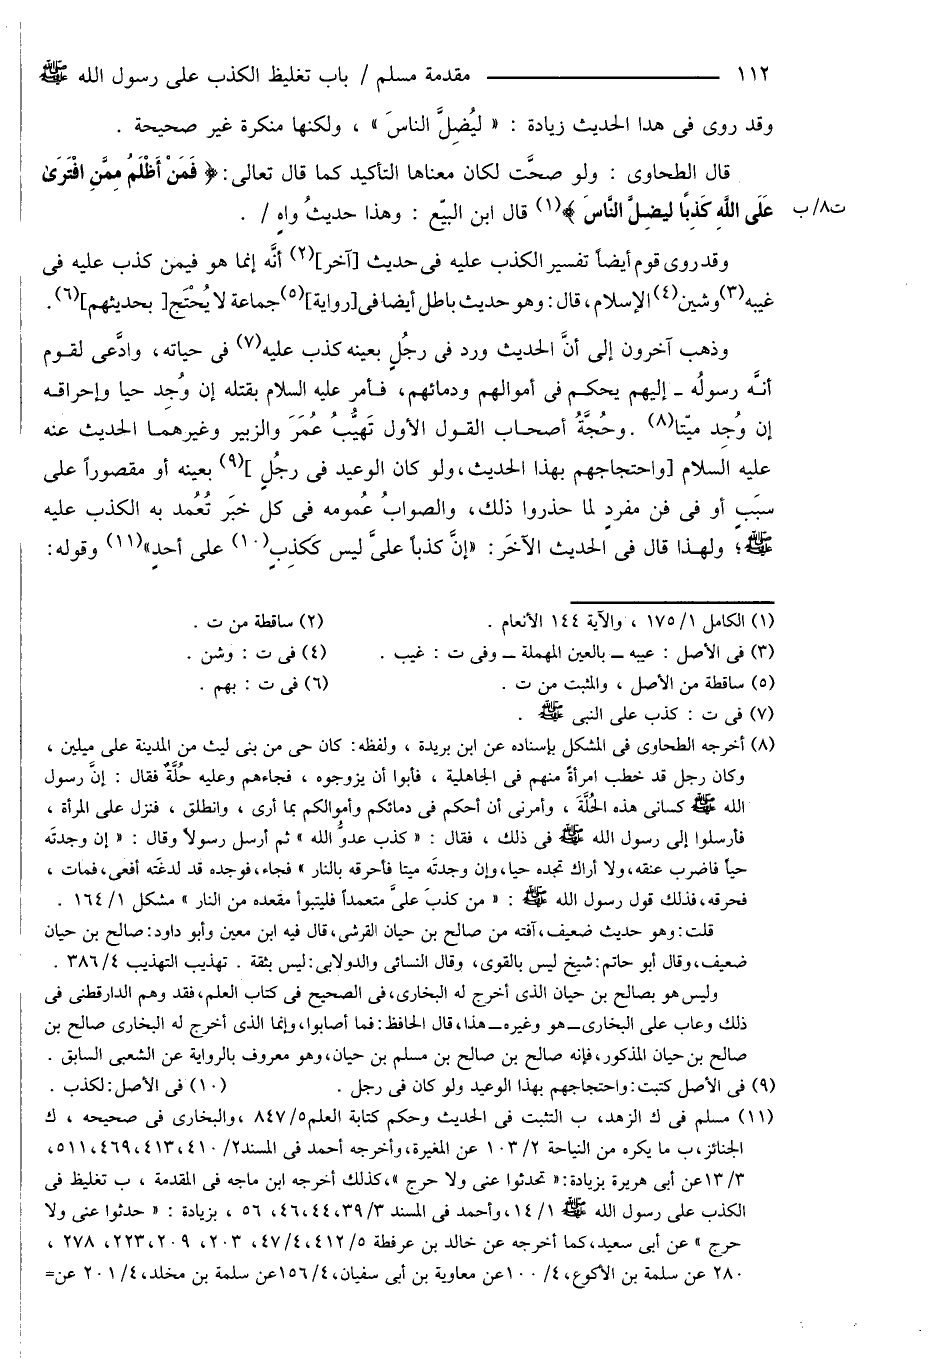 ١١٢ ــــــــــــــ مقدمة مسلم / باب تغليظ الكذب على رسول الله ﷺ
وقد روى فى هدا الحديث زيادة : « ليُضِلَّ الناسَ » ، ولكنها منكرة غير صحيحة .
قال الطحاوى : ولو صحَّت لكان معناها التأكيد كما قال تعالى : ﴿ فَمَنْ أَظْلَمُ مِمَّنِ افْتَرَىٰ
ت٨/ب عَلَى اللَّهِ كَذِبًا لِيضِلَّ النَّاسَ ﴾(١) قال ابن البيّع : وهذا حديثُ واهٍ / .
وقد روى قوم أيضاً تفسير الكذب عليه فى حديث [آخر](٢) أنَّه إنما هو فيمن كذب عليه فى
غيبه(٣) وشين(٤) الإسلام، قال : وهو حديث باطل أيضا فى [رواية](٥) جماعة لا يُحْتَج[ بحديثهم](٦).
وذهب آخرون إلى أنَّ الحديث ورد فى رجُلٍ بعينه كذب عليه(٧) فى حياته، وادَّعى لقوم
أنـَّه رسولُه ـ إليهم يحكـم فى أموالهم ودمائهم، فـأمر عليه السلام بقتله إن وُجِد حيا وإحراقـه
إن وُجِد ميّتا(٨) .وحُجَّةُ أصحـاب القـول الأول تَهيُّبُ عُمَرَ والزبير وغيرهمـا الحديث عنه
عليه السلام [واحتجاجهم بهذا الحديث، ولو كان الوعيد فى رجُلٍ ](٩) بعينه أو مقصوراً على
سبَبٍ أو فى فن مفردٍ لما حذروا ذلك، والصوابُ عُمومه فى كل خبَر تُعُمد به الكذب عليه
ﷺ؛ ولهـذا قال فى الحديث الآخَر : «إنَّ كذباً علىَّ ليس كَكذِبٍ(١٠) على أحدٍ»(١١) وقوله:
(١) الكامل ١/ ١٧٥ ، والآية ١٤٤ الأنعام . (٢) ساقطة من ت .
(٣) فى الأصل : عيبه ــ بالعين المهملة ــ وفى ت : غيب . (٤) فى ت : وشن .
(٥) ساقطة من الأصل ، والمثبت من ت . (٦) فى ت : بهم .
(٧) فى ت : كذب على النبى ﷺ .
(٨) أخرجه الطحاوى فى المشكل بإسناده عن ابن بريدة ، ولفظه: كان حى من بنى ليث من المدينة على ميلين ،
وكان رجل قد خطب امرأةً منهم فى الجاهلية ، فأبوا أن يزوجوه ، فجاءهم وعليه حُلَّةٌ فقال : إنَّ رسول
الله ﷺ كسانى هذه الحُلَّةَ ، وأمرنى أن أحكم فى دمائكم وأموالكم بما أرى ، وانطلق ، فنزل على المرأة ،
فأرسلوا إلى رسول الله ﷺ فى ذلك ، فقال : « كذب عدوُّ الله » ثم أرسل رسولاً وقال : « إن وجدتَه
حياً فاضرب عنقه، ولا أراك تجده حيا، وإن وجدتَه ميتا فأحرقه بالنار » فجاء، فوجده قد لدغَته أفعى، فمات ،
فحرقه، فذلك قول رسول الله ﷺ : « من كذبَ علىَّ متعمداً فليتبوأ مقعده من النار » مشكل ١/ ١٦٤ .
قلت: وهو حديث ضعيف، آفته من صالح بن حيان القرشى، قال فيه ابن معين وأبو داود: صالح بن حيان
ضعيف، وقال أبو حاتم: شيخ ليس بالقوى، وقال النسائى والدولابى: ليس بثقة . تهذيب التهذيب ٤/ ٣٨٦ .
وليس هو بصالح بن حيان الذى أخرج له البخارى، فى الصحيح فى كتاب العلم، فقد وهم الدارقطنى فى
ذلك وعاب على البخارى ــ هو وغيره ــ هذا، قال الحافظ: فما أصابوا، وإنما الذى أخرج له البخارى صالح بن
صالح بن حيان المذكور، فإنه صالح بن صالح بن مسلم بن حيان، وهو معروف بالرواية عن الشعبى السابق .
(٩) فى الأصل كتبت: واحتجاجهم بهذا الوعيد ولو كان فى رجل . (١٠) فى الأصل: لكذب .
(١١) مسلم فى ك الزهد، ب التثبت فى الحديث وحكم كتابة العلم ٥/ ٨٤٧ ، والبخارى فى صحيحه ، ك
الجنائز، ب ما يكره من النياحة ٢/ ١٠٣ عن المغيرة، وأخرجه أحمد فى المسند ٢/ ٤١٠، ٤١٣، ٤٦٩، ٥١١،
٣/ ١٣ عن أبى هريرة بزيادة: « تحدثوا عنى ولا حرج »، كذلك أخرجه ابن ماجه فى المقدمة ، ب تغليظ فى
الكذب على رسول الله ﷺ ١/ ١٤، وأحمد فى المسند ٣/ ٣٩، ٤٤، ٤٦، ٥٦ ، بزيادة : « حدثوا عنى ولا
حرج » عن أبى سعيد، كما أخرجه عن خالد بن عرفطة ٥/ ٤١٢، ٤/ ٤٧، ٢٠٣، ٢٠٩، ٢٢٣، ٢٧٨ ،
٢٨٠ عن سلمة بن الأكوع، ٤/ ١٠٠ عن معاوية بن أبى سفيان، ٤/ ١٥٦ عن سلمة بن مخلد، ٤/ ٢٠١ عن=